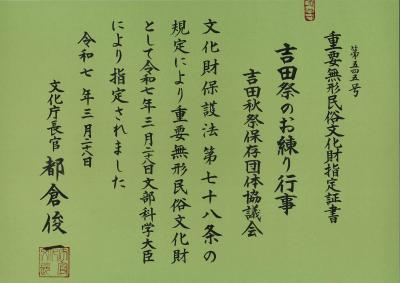 第五四五号
重要無形民俗文化財指定証書
吉田祭のお練り行事
吉田秋祭保存団体協議会
文化財保護法第七十八条の
規定により重要無形民俗文化財
として令和七年三月二十八日文部科学大臣
により指定されました
令和七年三月二十八日
文化庁長官 都倉俊一